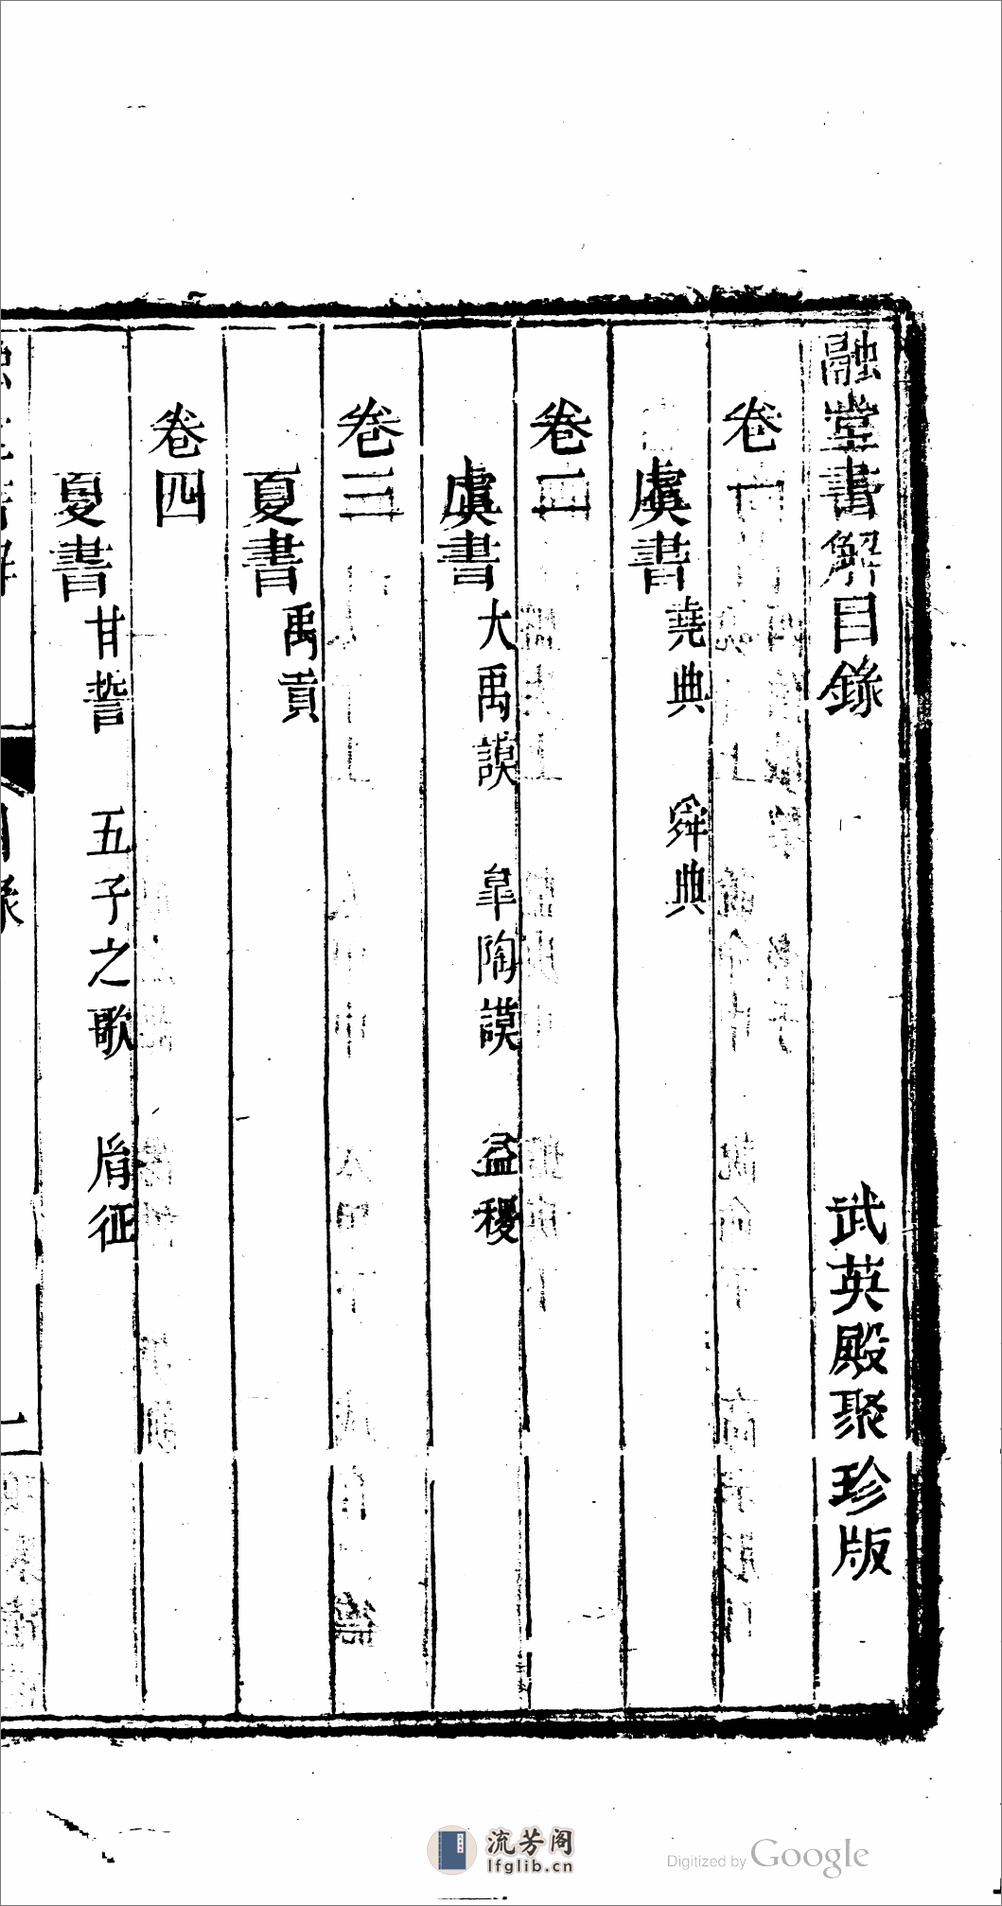 融堂書解目錄　武英殿聚珍版
卷一
虞書 堯典　舜典
卷二
虞書 大禹謨　皐陶謨　益稷
卷三
夏書 禹貢
卷四
夏書 甘誓　五子之歌　胤征
流芳阁
lfglib.cn
Digitized by Google